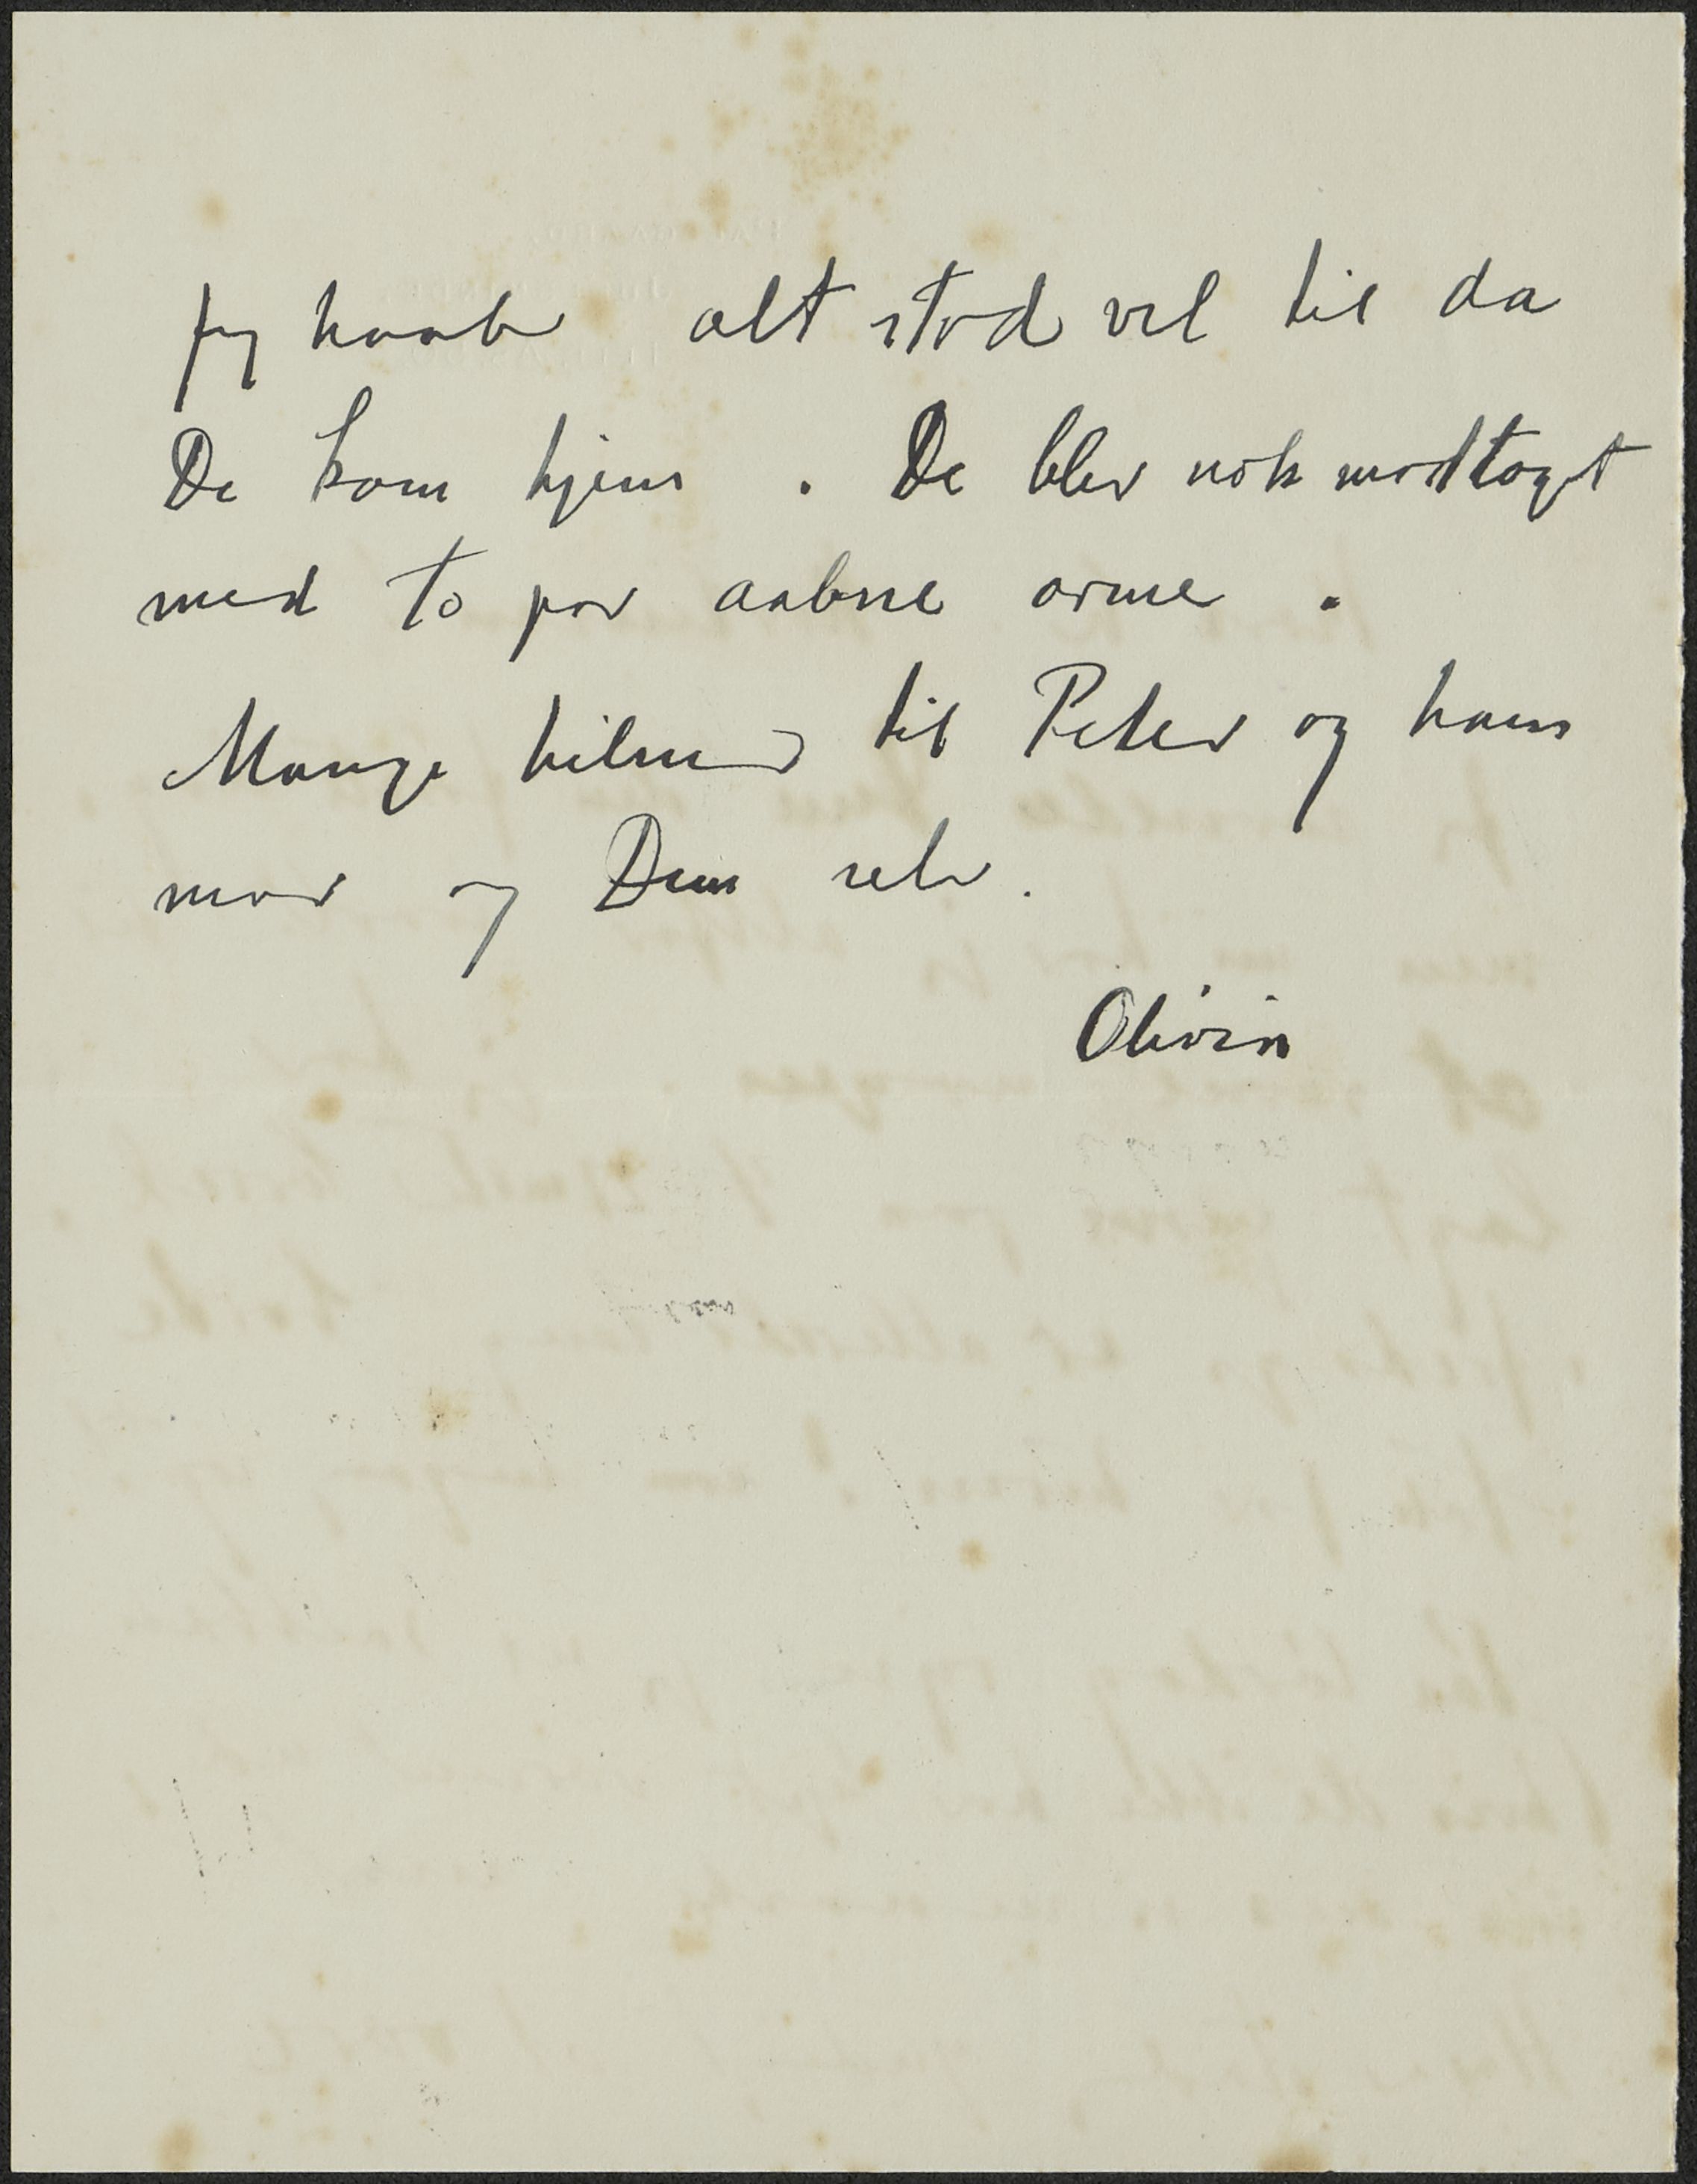 Jeg haaber alt stod vel til da
De kom hjem . De blev nok modtagt
med to par aabne arme .
Mange hilsener til Peter og hans
mor og Dem selv .
Olivia